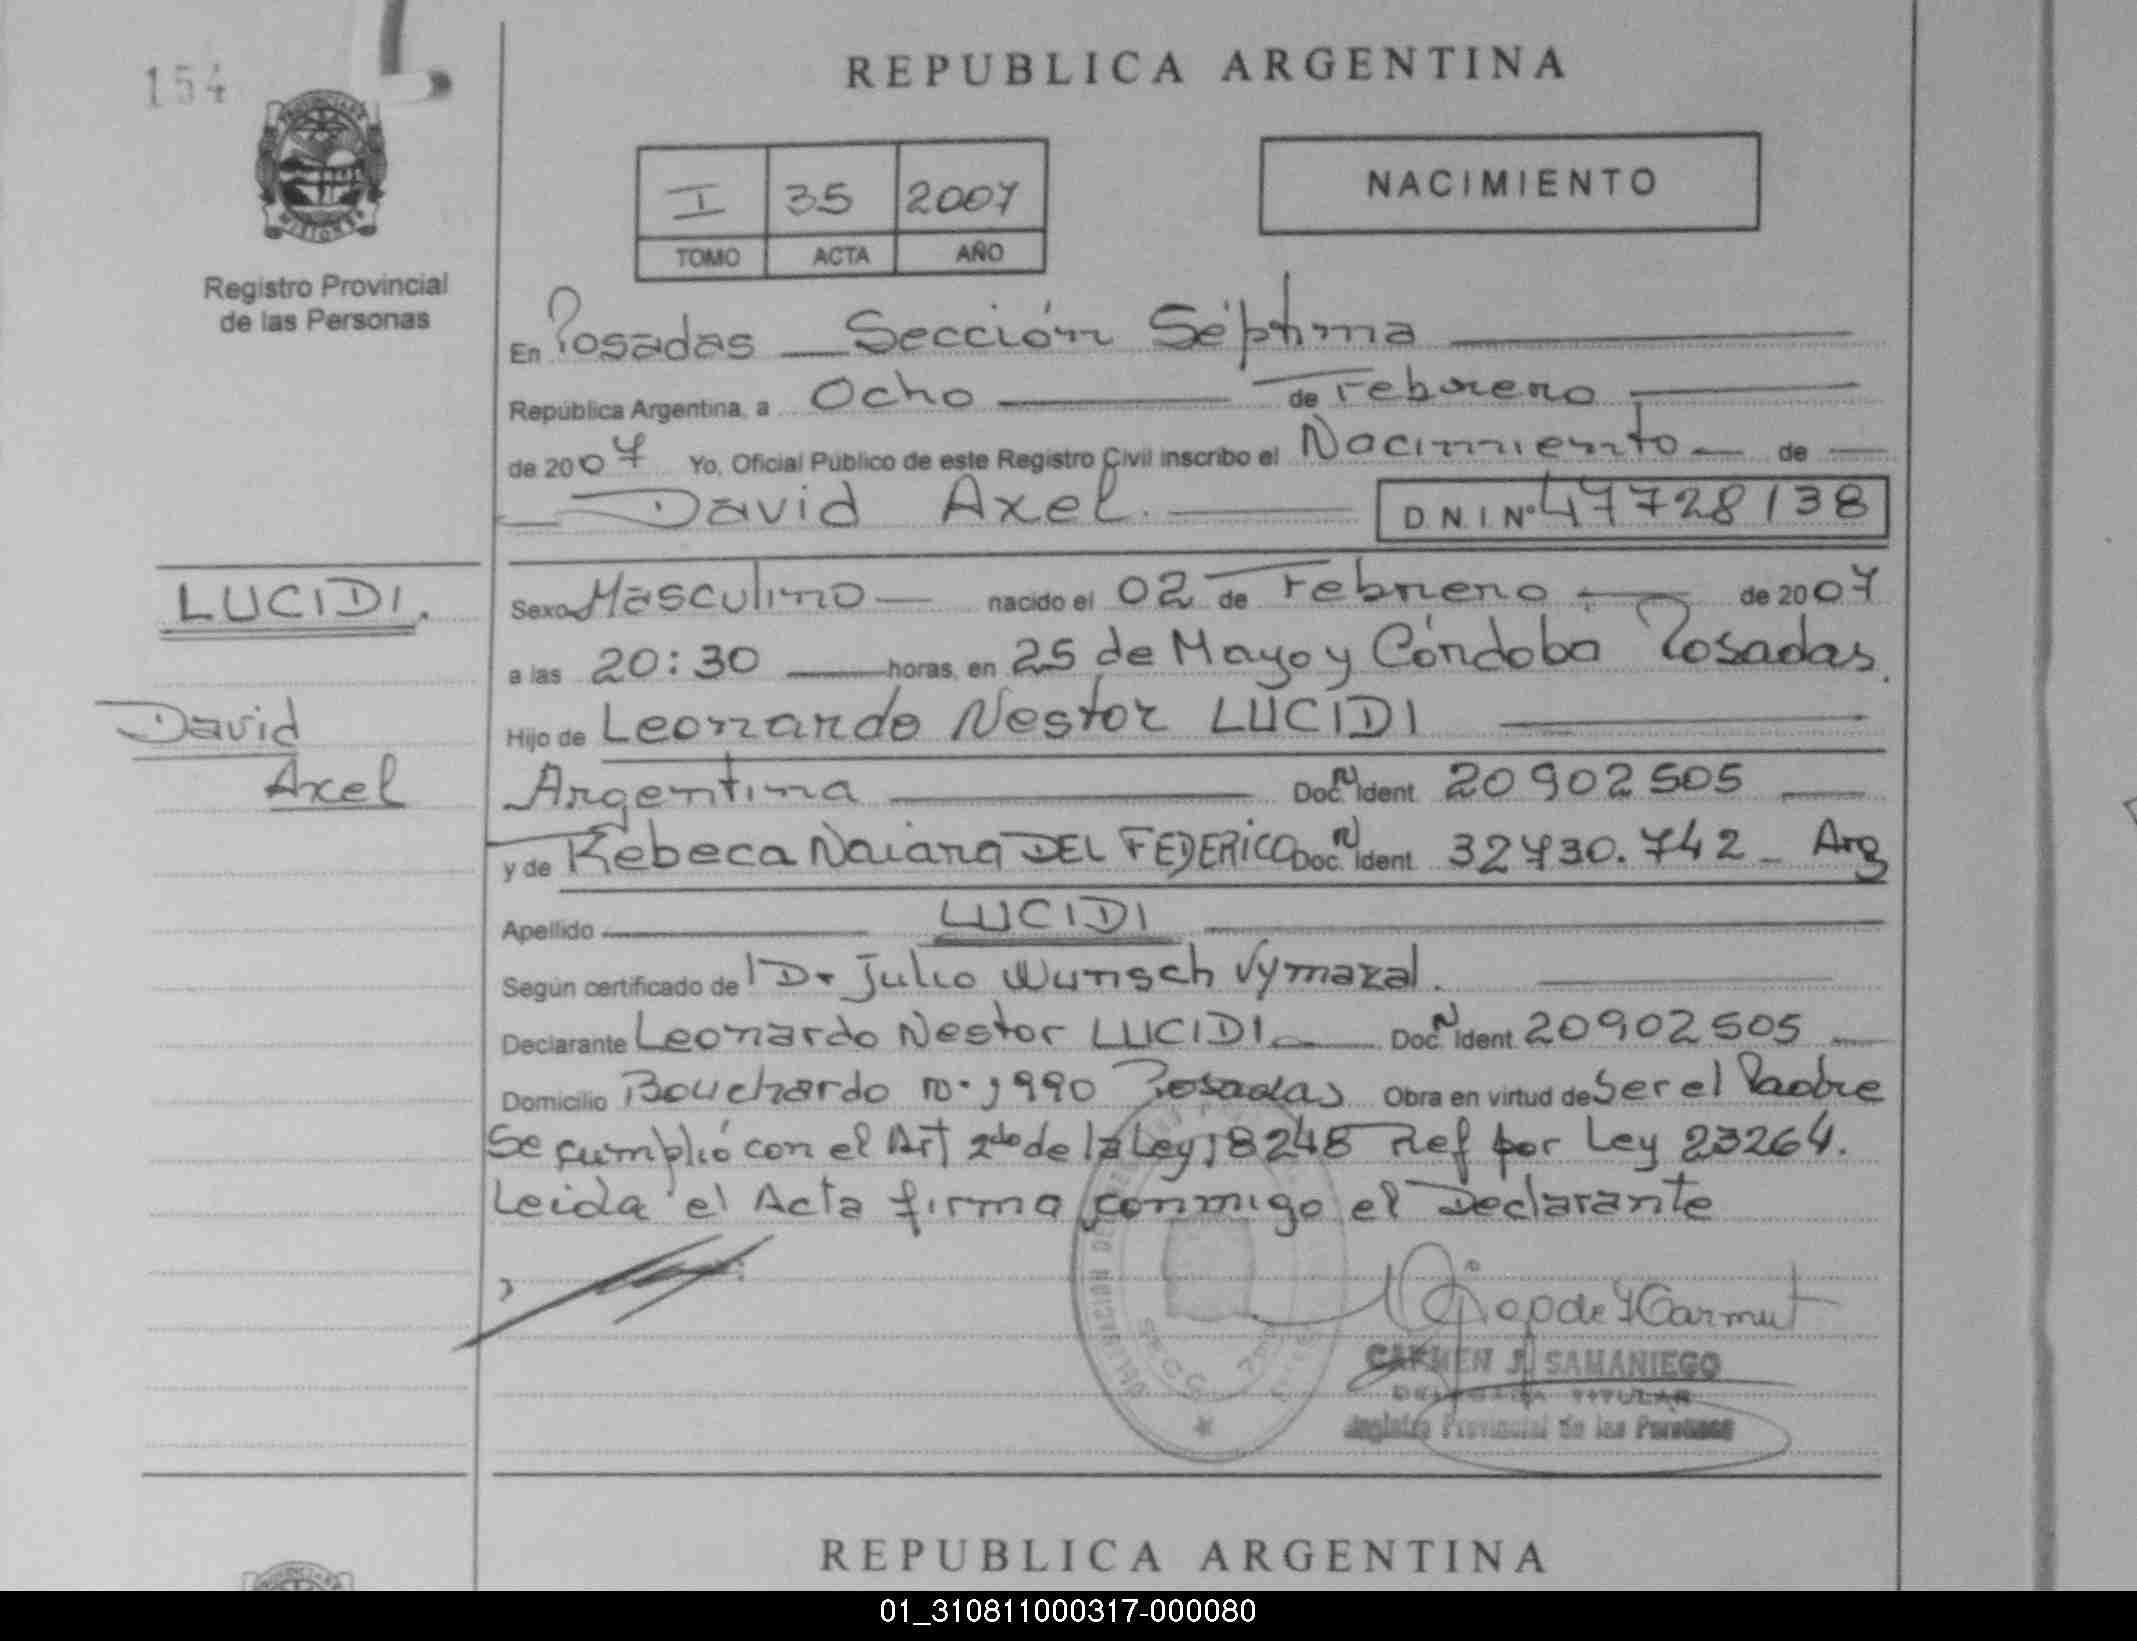 154
REPUBLICA ARGENTINA
I 35 2007
TOMO ACTA AÑO
NACIMIENTO
Registro Provincial
de las Personas
En Posadas Sección Séptima
República Argentina, a Ocho de Febrero
de 2007 Yo, Oficial Público de este Registro Civil inscribo el Nacimiento de
David Axel. D.N.I Nº 47728138
LUCIDI.
David
Axel
Sexo Masculino nacido el 02 de Febrero de 2007
a las 20:30 horas, en 25 de Mayo y Córdoba Posadas.
Hijo de Leonardo Nestor LUCIDI
Argentina Doc. N Ident 20902505
y de Rebeca Naiara DEL FEDERICO Doc. N Ident 32730.742 Arg
Apellido LUCIDI
Según certificado de Dr Julio Wunsch Vymazal.
Declarante Leonardo Nestor LUCIDI Doc. N Ident 20902505
Domicilio Bouchardo nº 1990 Posadas Obra en virtud de Ser el Padre
Se cumplió con el Art 2do de la Ley 18248 Ref por Ley 23264.
Leida el Acta firma conmigo el Declarante
CARMEN J. SAMANIEGO
DELEGADA TITULAR
Registro Provincial de las Personas
REPUBLICA ARGENTINA
01_310811000317-000080